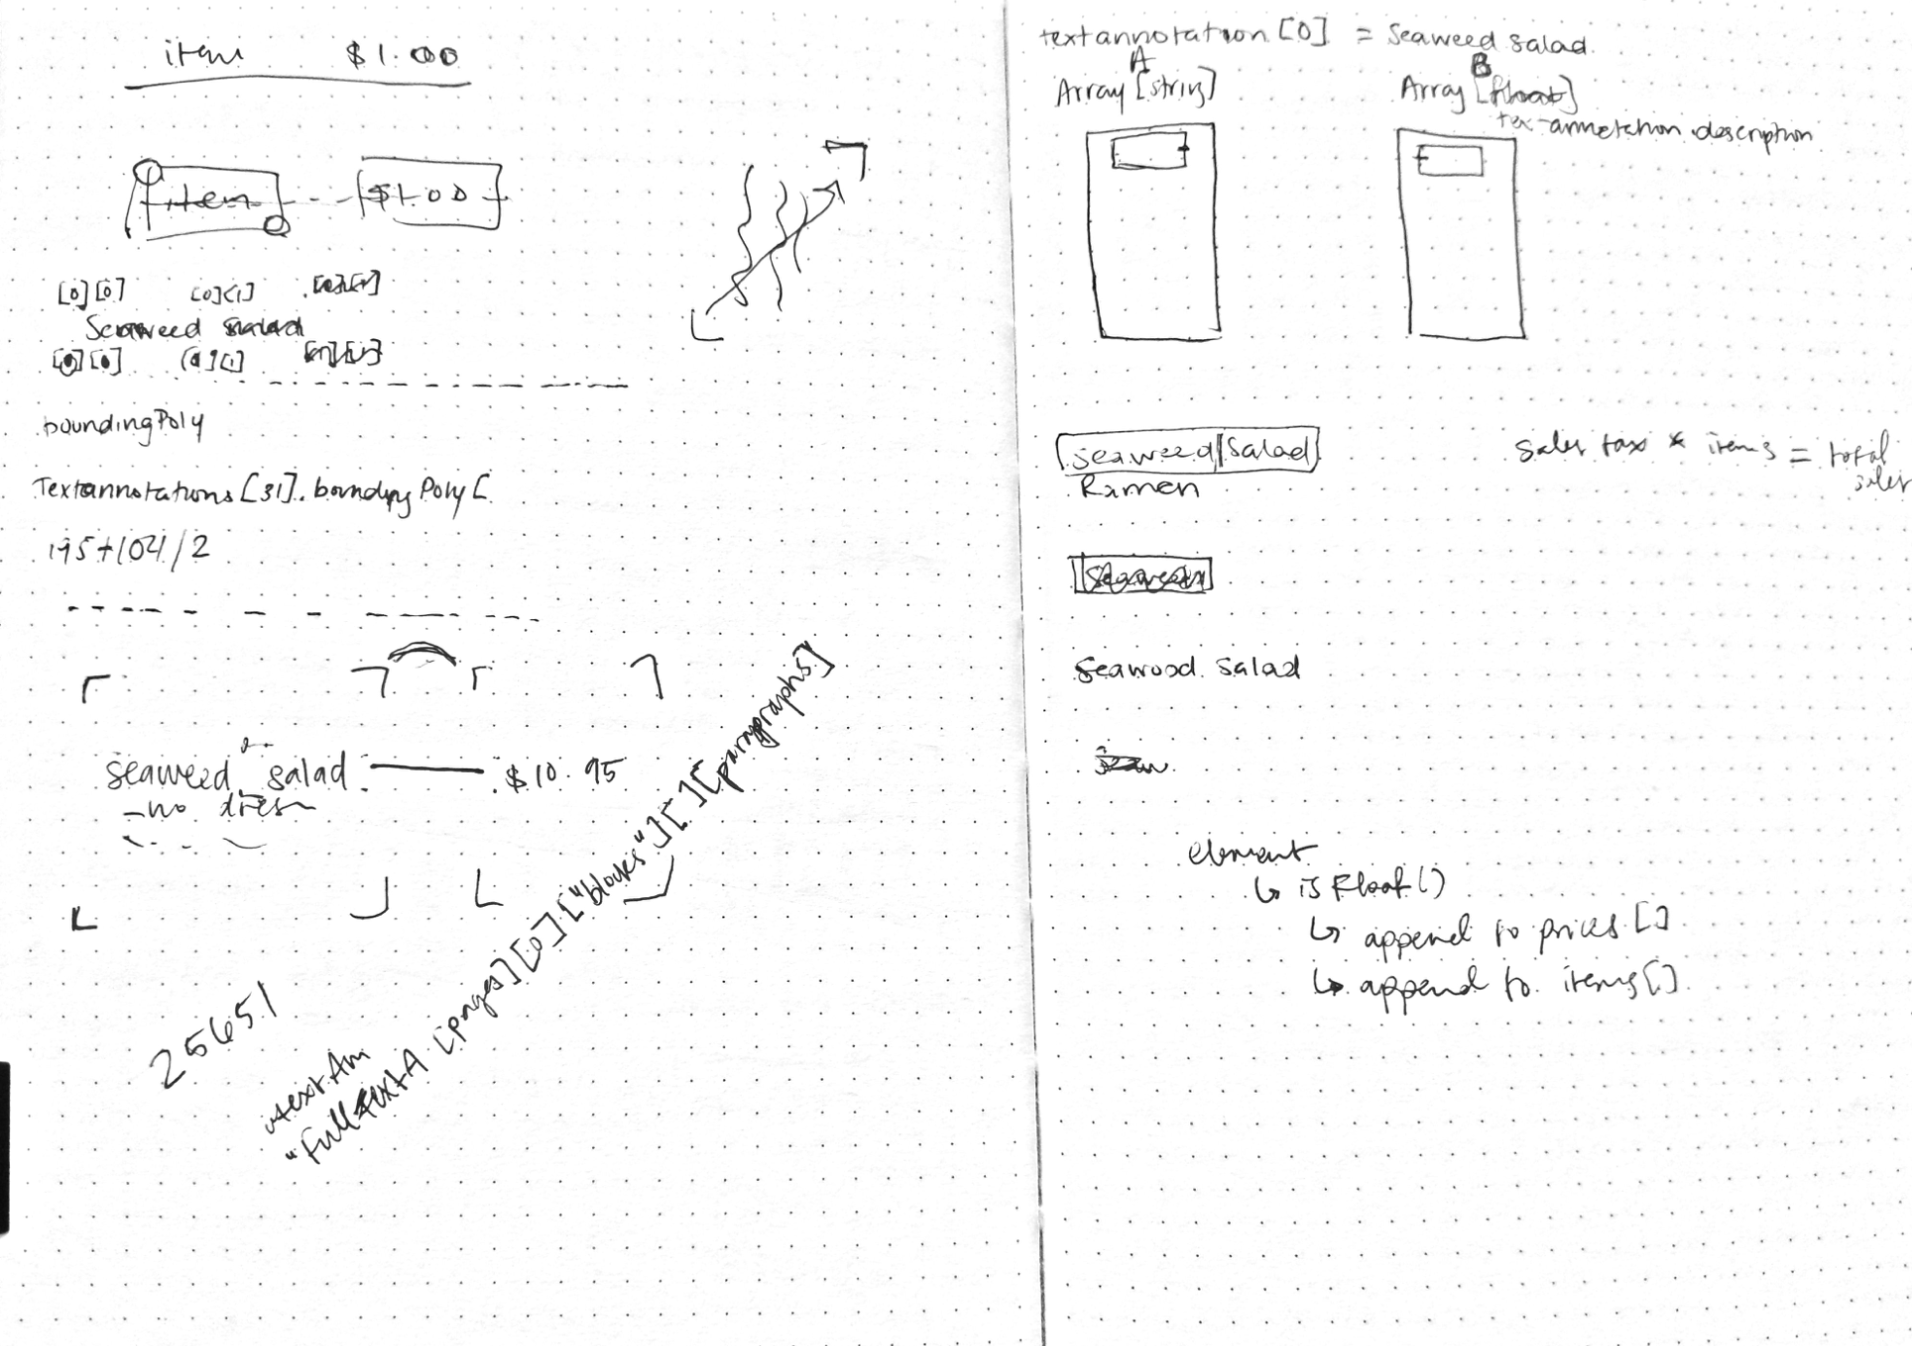 item $1.00
item $1.00
[0][0] [0][1]
Seaweed salad
[0][0] [0][1]
boundingPoly
Textannotations[31].boundingPoly[
195+104/2
seaweed salad $10.95
-no dres
25651
textAnn
"FullTextA [pages][0]["blocks"][ ][paragraphs]
textannotation[0] = Seaweed salad
A B
Array[string] Array[float]
description
seaweed salad
Ramen
sales tax * items = total
sales
Seawood salad
element
↳ isFloat()
↳ append to prices[]
↳ append to items[]